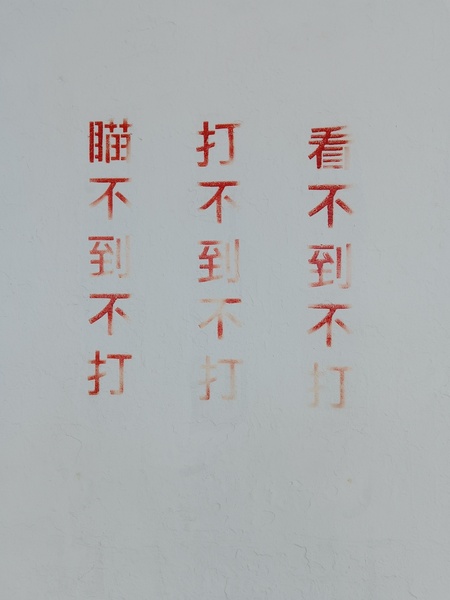 看不到不打
打不到不打
瞄不到不打